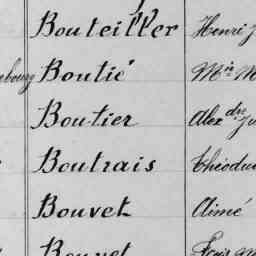 Bouteiller Henri J
bourg Boutié Mie M
Boutier Alexdre Ju
Boutrais Théodu
Bouvet Aimé
Bouvet